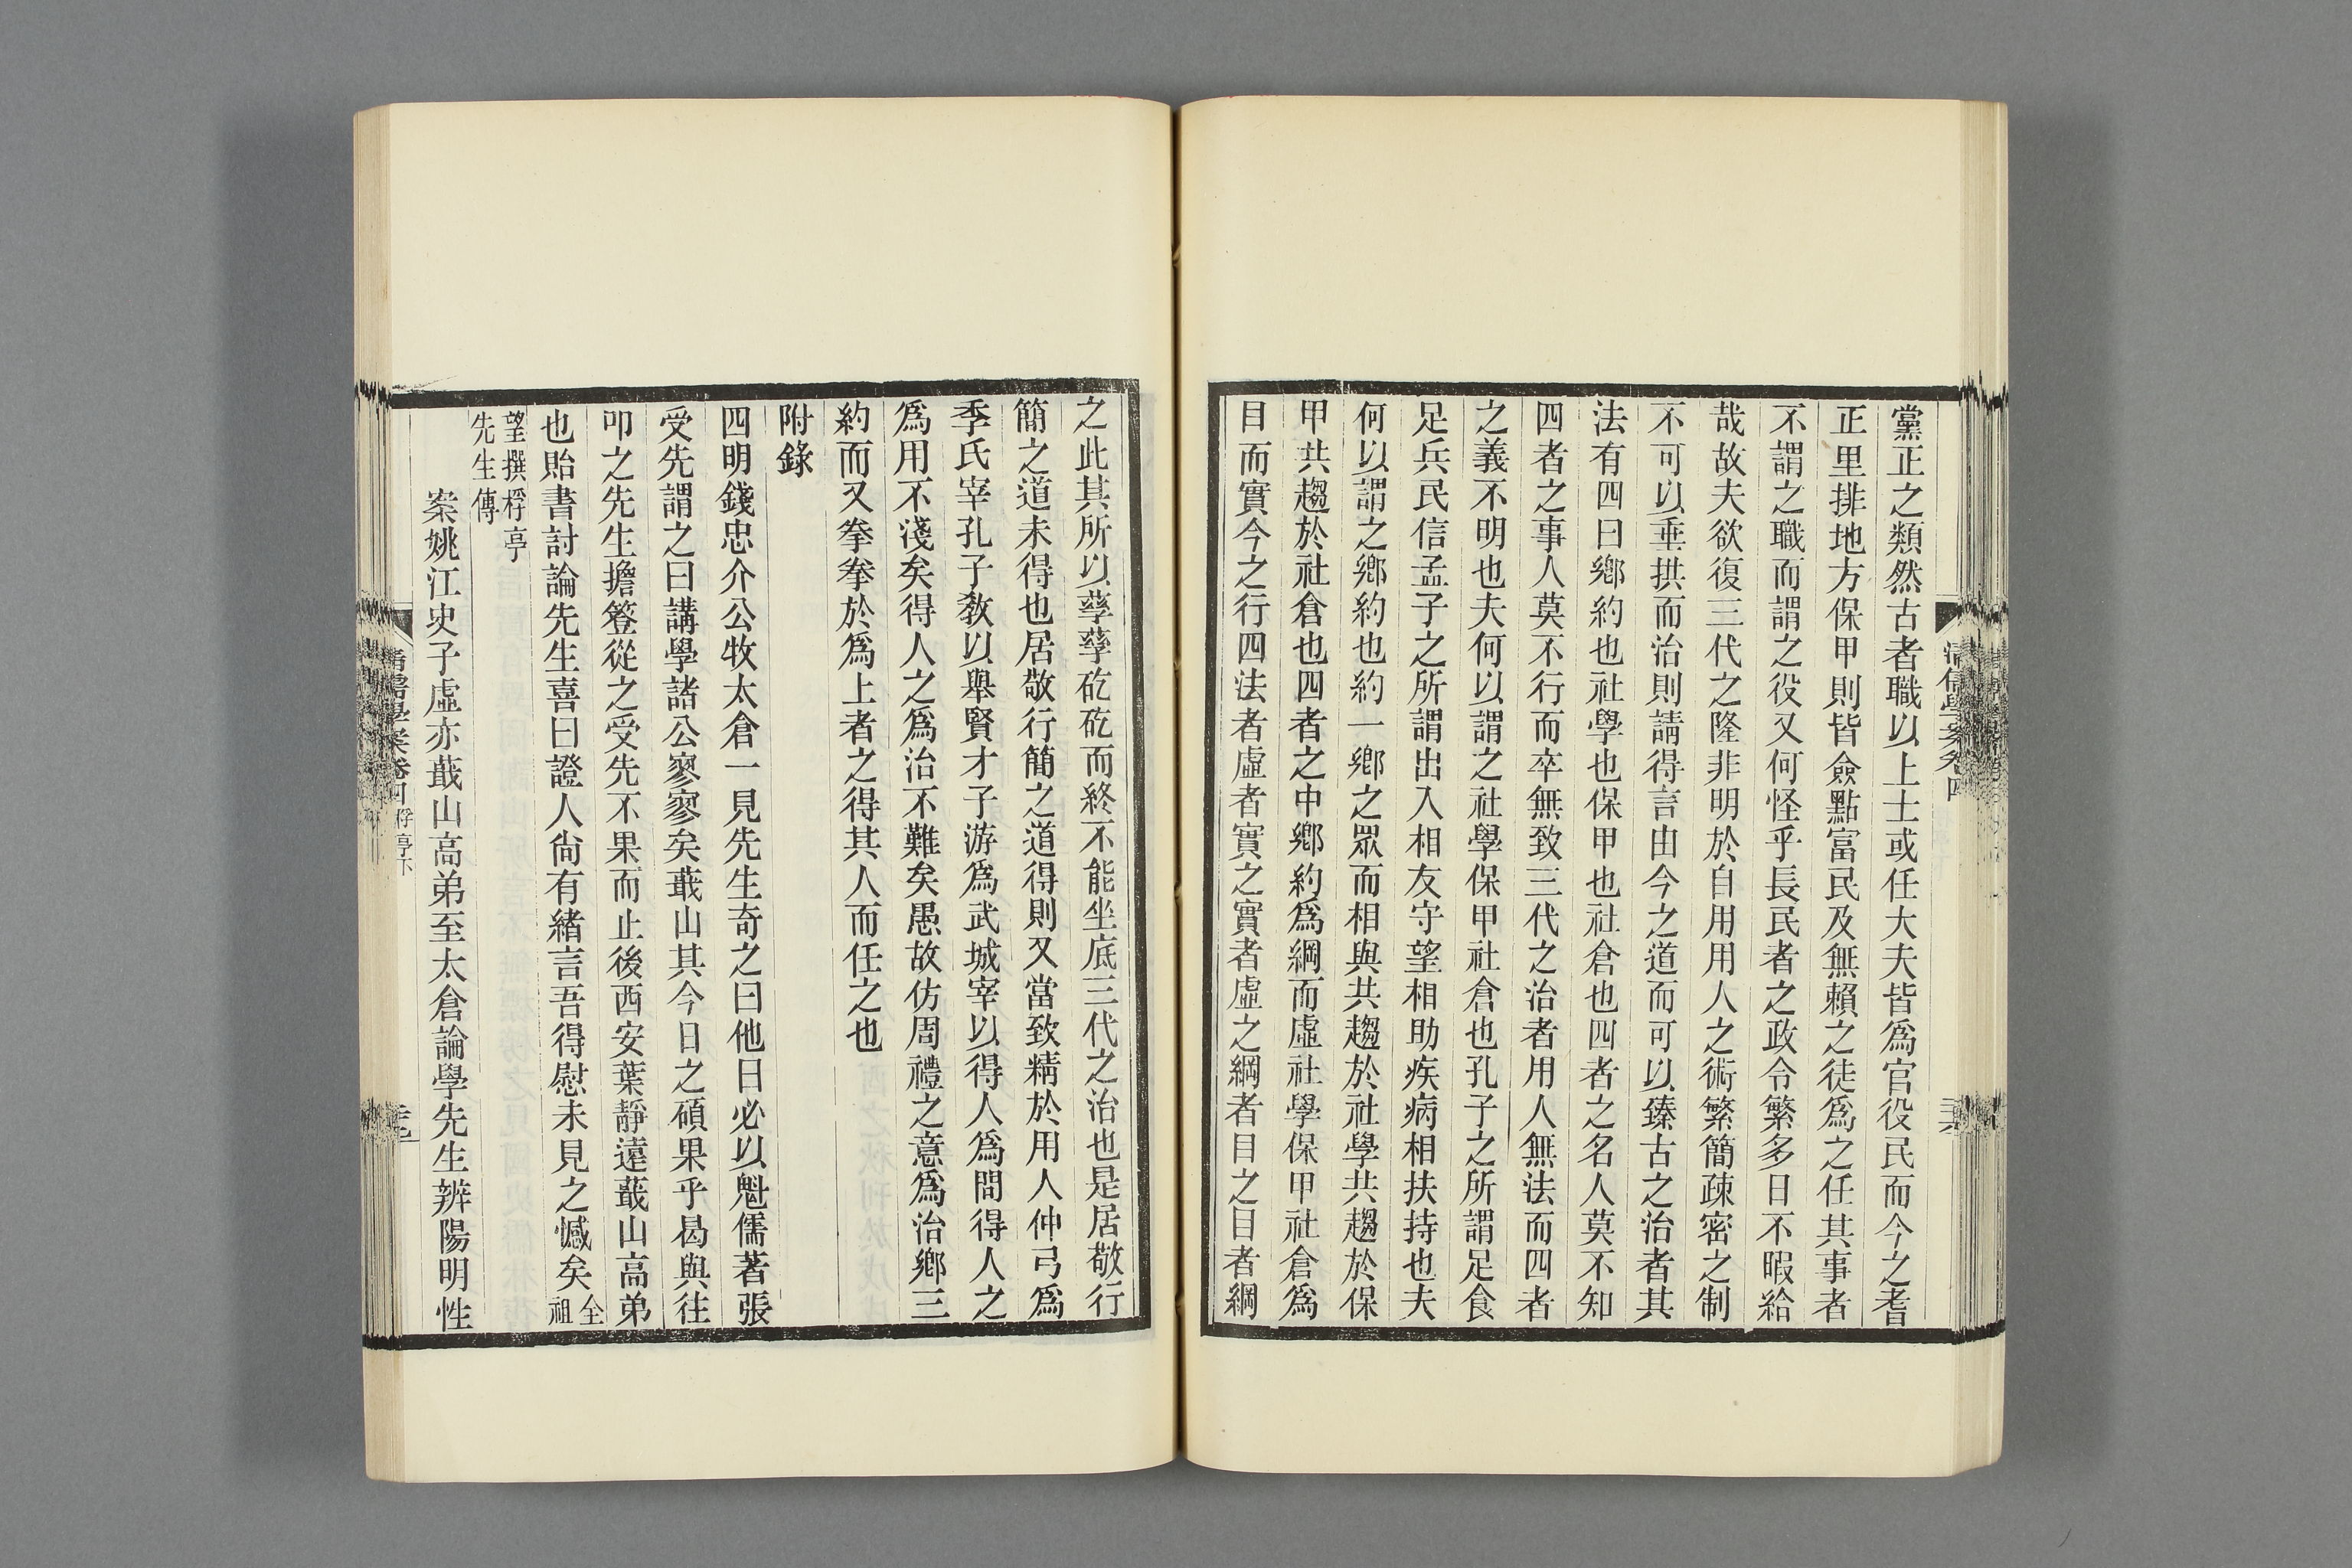 黨正之類然古者職以上士或任大夫皆爲官役民而今之耆
正里排地方保甲則皆僉點富民及無賴之徒爲之任其事者
不謂之職而謂之役又何怪乎長民者之政令繁多日不暇給
哉故夫欲復三代之隆非明於自用用人之術繁簡疎密之制
不可以垂拱而治則請得言由今之道而可以臻古之治者其
法有四曰鄕約也社學也保甲也社倉也四者之名人莫不知
四者之事人莫不行而卒無致三代之治者用人無法而四者
之義不明也夫何以謂之社學保甲社倉也孔子之所謂足食
足兵民信孟子之所謂出入相友守望相助疾病相扶持也夫
何以謂之鄕約也約一鄕之眾而相與共趨於社學共趨於保
甲共趨於社倉也四者之中鄕約爲綱而虛社學保甲社倉爲
目而實今之行四法者虛者實之實者虛之綱者目之目者綱
之此其所以孳孳矻矻而終不能坐底三代之治也是居敬行
簡之道未得也居敬行簡之道得則又當致精於用人仲弓爲
季氏宰孔子敎以舉賢才子游爲武城宰以得人爲問得人之
爲用不淺矣得人之爲治不難矣愚故仿周禮之意爲治鄕三
約而又拳拳於爲上者之得其人而任之也
附錄
四明錢忠介公牧太倉一見先生奇之曰他日必以魁儒著張
受先謂之曰講學諸公寥寥矣蕺山其今日之碩果乎曷與往
叩之先生擔簦從之受先不果而止後西安葉靜遠蕺山高弟
也貽書討論先生喜曰證人尙有緒言吾得慰未見之憾矣全祖
望撰桴亭先生傳
案姚江史子虛亦蕺山高弟至太倉論學先生辨陽明性
清儒學案卷四 桴亭下